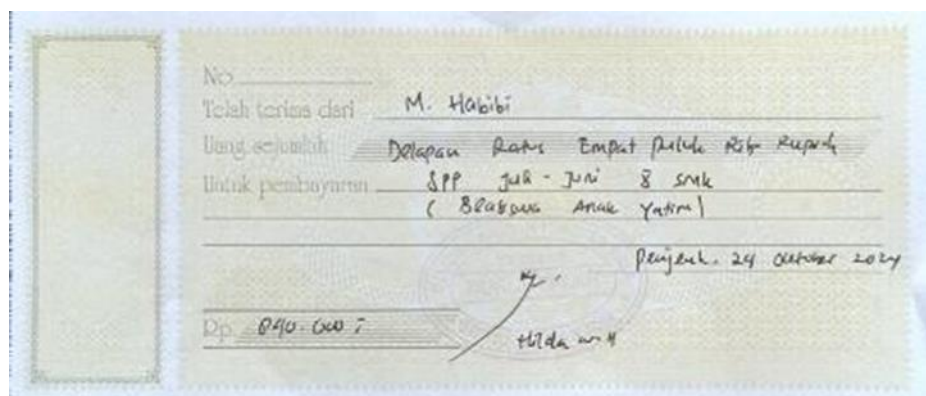 No
Telah terima dari M. Habibi
Uang sejumlah Delapan Ratus Empat Puluh Ribu Rupiah
Untuk pembayaran SPP Juli - Juni 8 smk
( Anak Yatim )
24 Oktober 2024
Rp. 840.000
Hilda